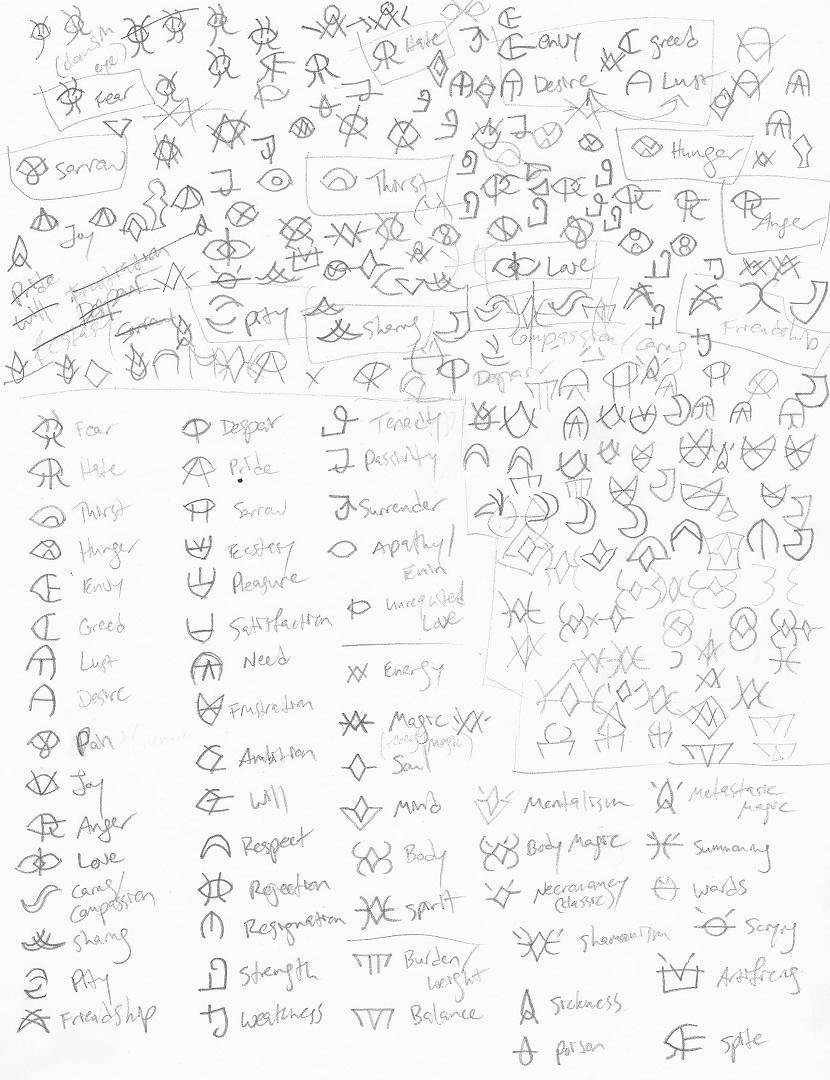 Hate
envy
greed
Desire
Lust
Fear
Hunger
Sorrow
Thirst
Anger
Joy
Love
Pride
Will
Pity
Sharing
Friendship
Compassion/caring
Despair
Fear
Hate
Thirst
Hunger
Envy
Greed
Lust
Desire
Pain
Joy
Anger
Love
Caring/
Compassion
Sharing
Pity
Friendship
Despair
Pride
Sorrow
Ecstesy
Pleasure
Satisfaction
Need
Frustration
Ambition
Will
Respect
Rejection
Resignation
Strength
Weakness
Tenacity
Passivity
Surrender
Apathy/
Unrequited
Love
Energy
Magic
Soul
Mind
Body
Spirit
Burden/
weight
Balance
Mentalism
Body Magic
Necromancy
(classic)
Shamanism
Sickness
Poison
Metastatic
Magic
Summoning
Words
Scrying
Spite